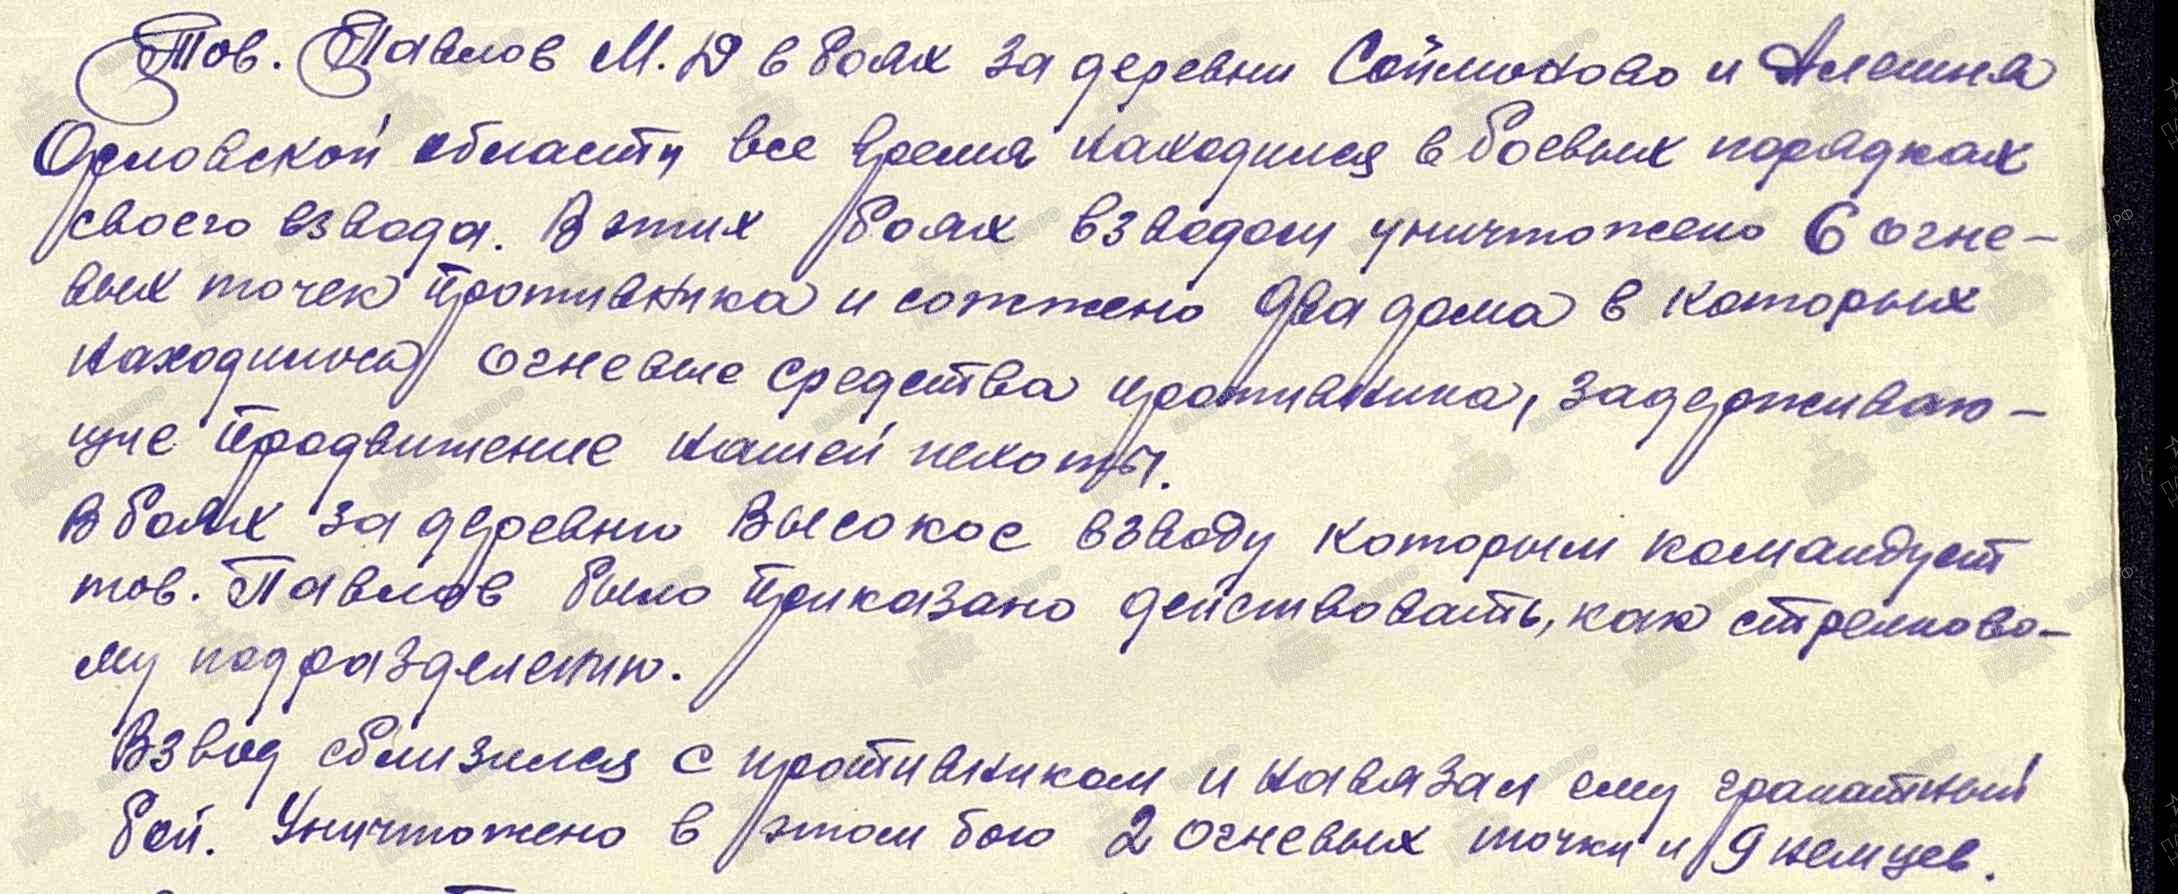 Тов. Павлов М.Д в боях за деревни Соймоново и Алешня
Орловской области все время находился в боевых порядках
своего взвода. В этих боях взводом уничтожено 6 огне-
вых точек противника и сожжено два дома в которых
находилось огневые средства противника, задерживаю-
щие продвижение нашей пехоты.
В боях за деревню Высокое взводу которым командует
тов. Павлов было приказано действовать, как стрелково-
му подразделению.
Взвод сблизился с противником и навязал ему гранатный
бой. Уничтожено в этом бою 2 огневых точки и 9 немцев.